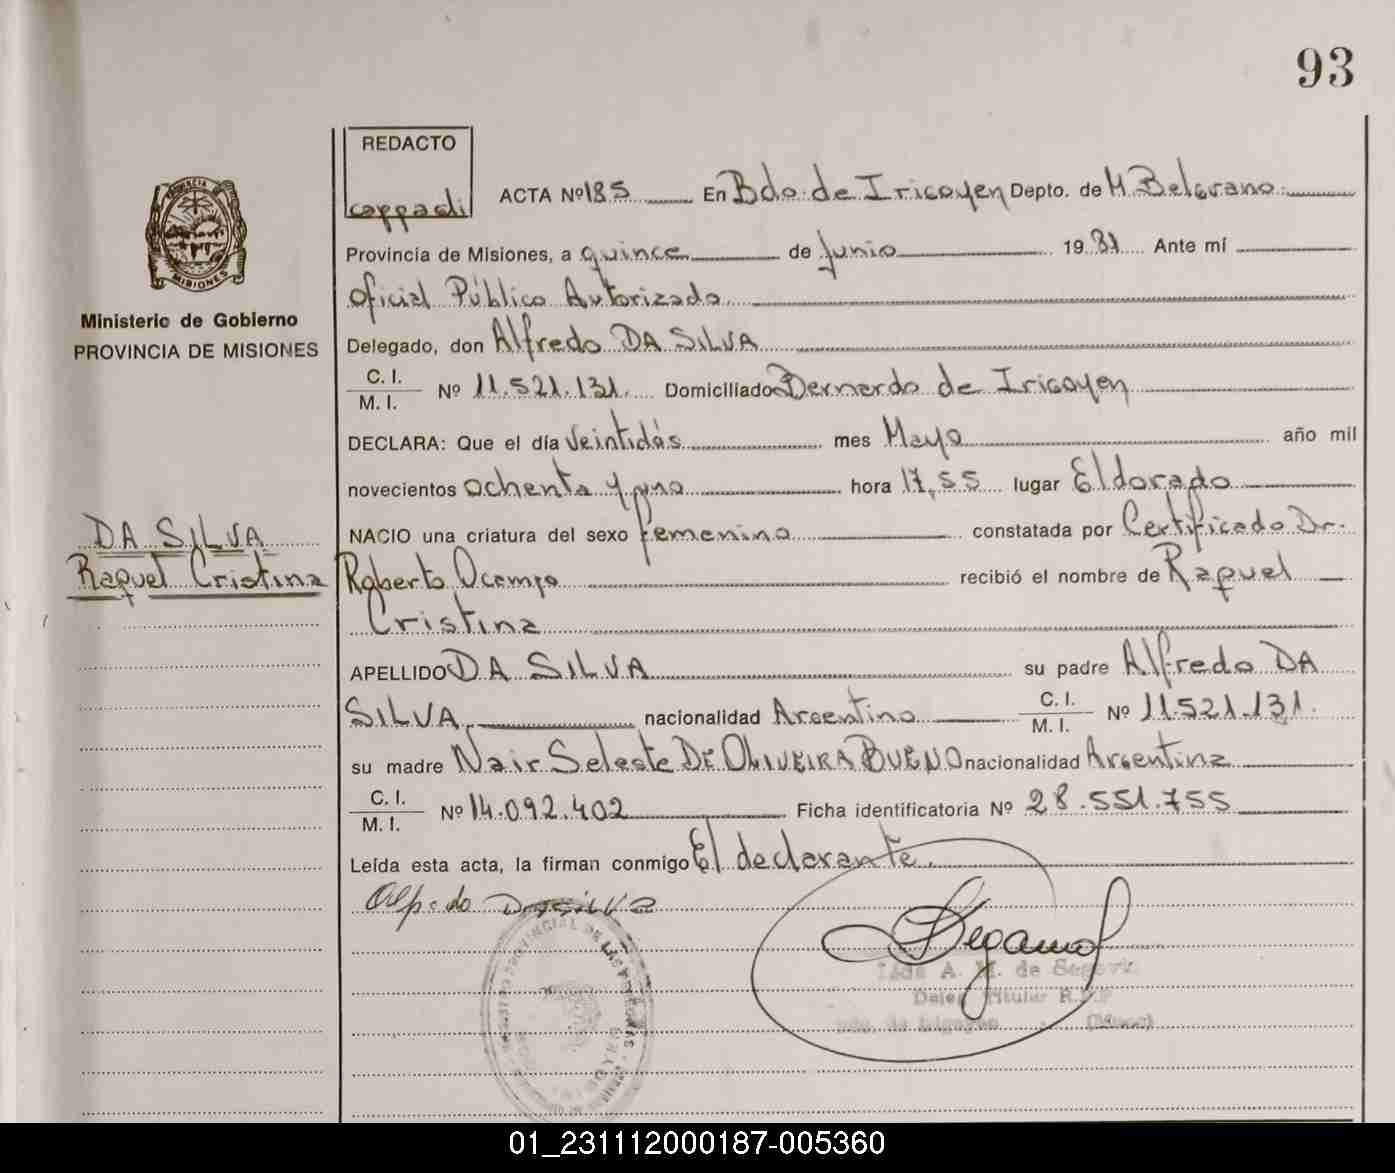 93
REDACTO
cappadi
ACTA Nº 185 En Bdo. de Iricoyen Depto. de M. Belgrano.
PROVINCIA DE MISIONES
Provincia de Misiones, a quince de Junio 1981 Ante mí
Oficial Público Autorizado
Ministerio de Gobierno
PROVINCIA DE MISIONES
Delegado, don Alfredo DA SILVA
C. I.
M. I. Nº 11.521.131. Domiciliado Bernardo de Iricoyen
DECLARA: Que el día Veintidós mes Mayo año mil
novecientos ochenta y uno hora 17,55 lugar Eldorado
DA SILVA
Raquel Cristina
NACIO una criatura del sexo femenino constatada por Certificado Dr.
Roberto Ocampo recibió el nombre de Raquel
Cristina
APELLIDO DA SILVA su padre Alfredo DA
SILVA nacionalidad Argentino C. I.
M. I. Nº 11.521.131.
su madre Nair Seleste DE OLIVEIRA BUENO nacionalidad Argentina
C. I.
M. I. Nº 14.092.402 Ficha identificatoria Nº 28.551.755
Leída esta acta, la firman conmigo El declarante.
Alfredo DA SILVA
A. M. de Segovia
Titular
01_231112000187-005360